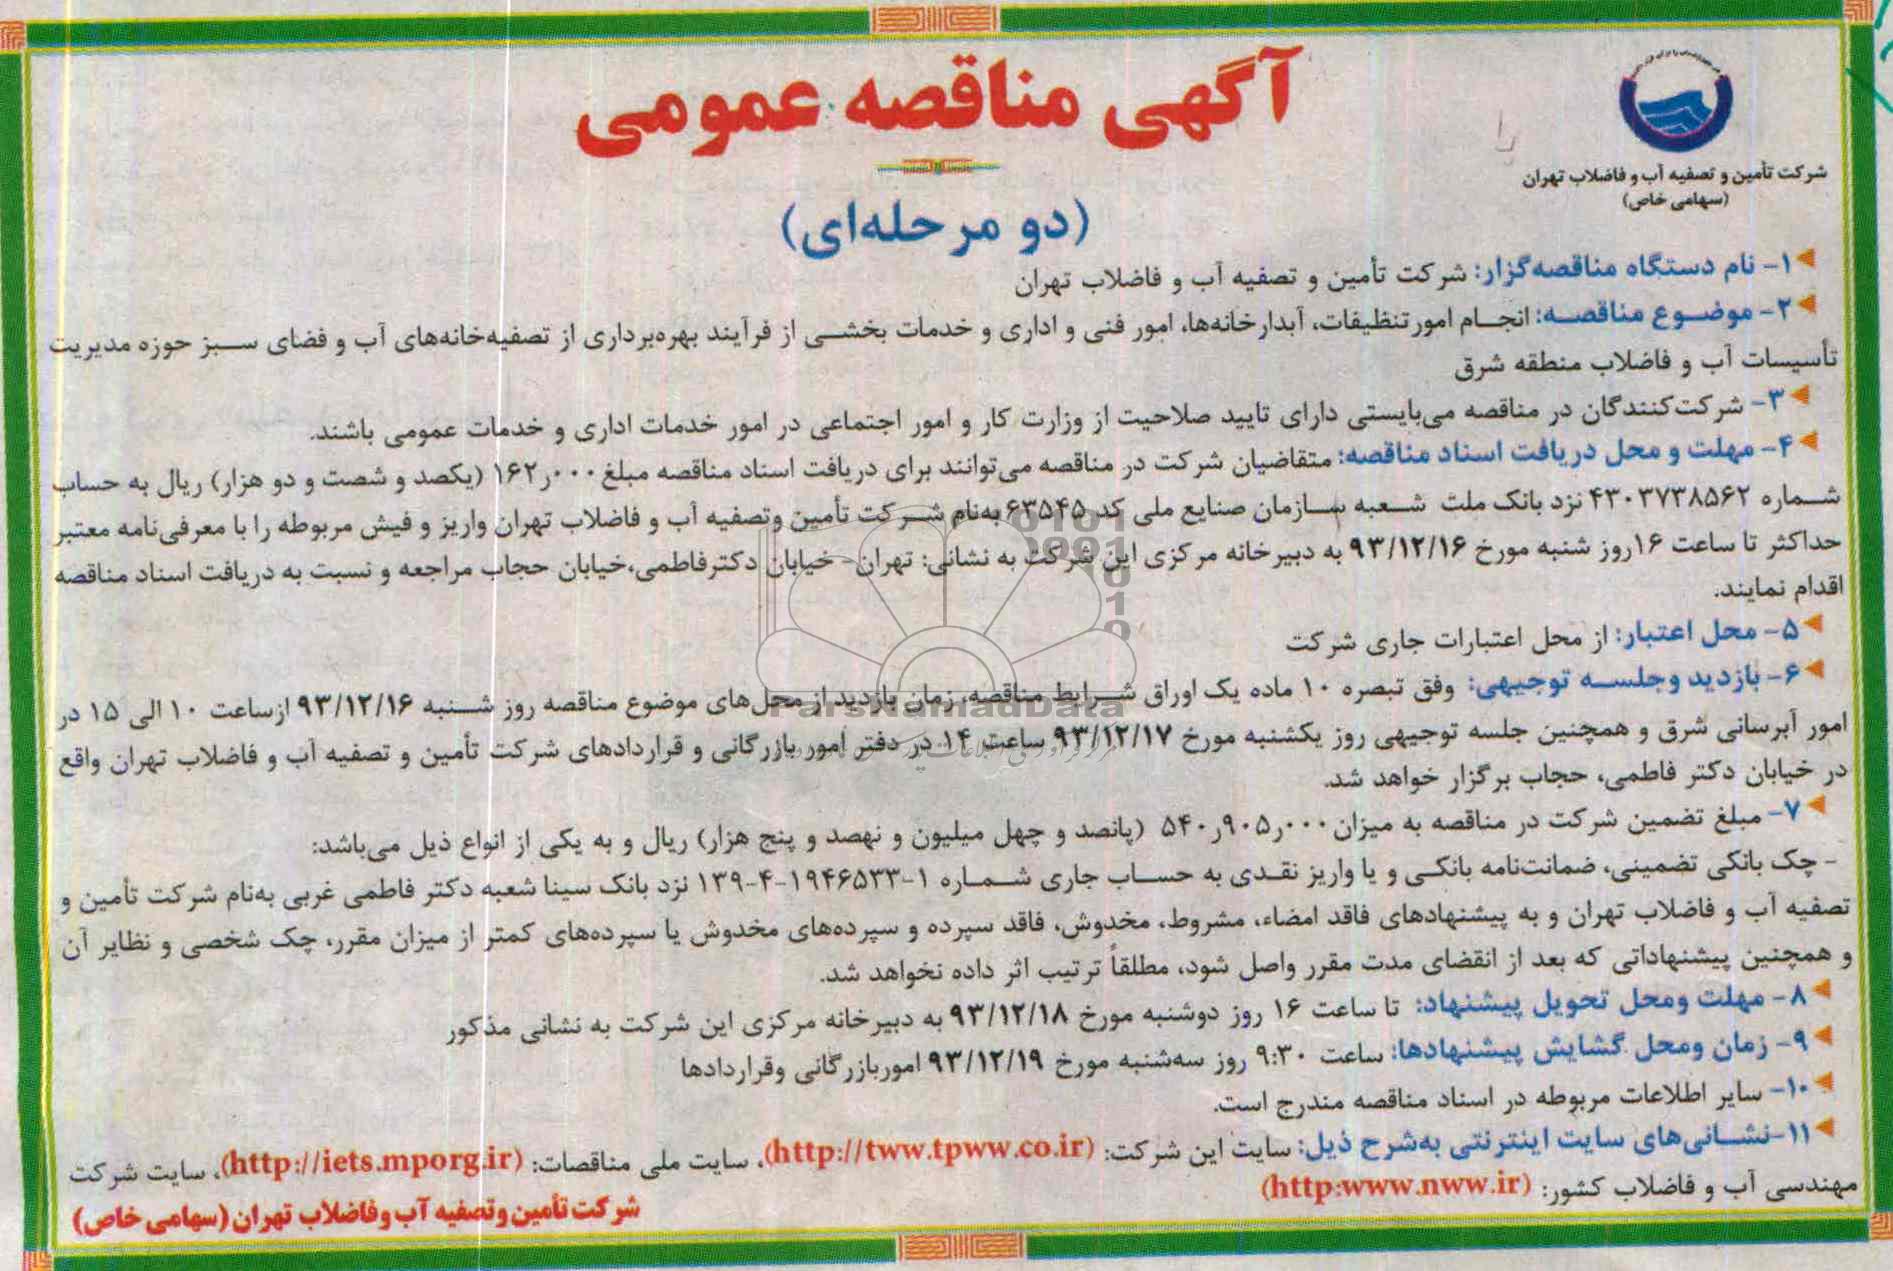 آگهی مناقصه عمومی
(دو مرحله‌ای)
شرکت تأمین و تصفیه آب و فاضلاب تهران
(سهامی خاص)
۱- نام دستگاه مناقصه‌گزار: شرکت تأمین و تصفیه آب و فاضلاب تهران
۲- موضوع مناقصه: انجام امور تنظیفات، آبدارخانه‌ها، امور فنی و اداری و خدمات بخشی از فرآیند بهره‌برداری از تصفیه‌خانه‌های آب و فضای سبز حوزه مدیریت
تأسیسات آب و فاضلاب منطقه شرق
۳- شرکت‌کنندگان در مناقصه می‌بایستی دارای تایید صلاحیت از وزارت کار و امور اجتماعی در امور خدمات اداری و خدمات عمومی باشند.
۴- مهلت و محل دریافت اسناد مناقصه: متقاضیان شرکت در مناقصه می‌توانند برای دریافت اسناد مناقصه مبلغ ۱۶۲ر۰۰۰ (یکصد و شصت و دو هزار) ریال به حساب
شماره ۴۳۰۳۷۳۸۵۶۲ نزد بانک ملت شعبه سازمان صنایع ملی کد ۶۳۵۴۵ به‌نام شرکت تأمین وتصفیه آب و فاضلاب تهران واریز و فیش مربوطه را با معرفی‌نامه معتبر
حداکثر تا ساعت ۱۶روز شنبه مورخ ۹۳/۱۲/۱۶ به دبیرخانه مرکزی این شرکت به نشانی: تهران- خیابان دکترفاطمی،خیابان حجاب مراجعه و نسبت به دریافت اسناد مناقصه
اقدام نمایند.
۵- محل اعتبار: از محل اعتبارات جاری شرکت
۶- بازدید وجلسه توجیهی: وفق تبصره ۱۰ ماده یک اوراق شرایط مناقصه، زمان بازدید از محل‌های موضوع مناقصه روز شنبه ۹۳/۱۲/۱۶ ازساعت ۱۰ الی ۱۵ در
امور آبرسانی شرق و همچنین جلسه توجیهی روز یکشنبه مورخ ۹۳/۱۲/۱۷ ساعت ۱۴ در دفتر امور بازرگانی و قراردادهای شرکت تأمین و تصفیه آب و فاضلاب تهران واقع
در خیابان دکتر فاطمی، حجاب برگزار خواهد شد.
۷- مبلغ تضمین شرکت در مناقصه به میزان ۵۴۰ر۹۰۵ر۰۰۰ (پانصد و چهل میلیون و نهصد و پنج هزار) ریال و به یکی از انواع ذیل می‌باشد:
- چک بانکی تضمینی، ضمانت‌نامه بانکی و یا واریز نقدی به حساب جاری شماره ۱-۱۹۴۶۵۳۳-۴-۱۳۹ نزد بانک سینا شعبه دکتر فاطمی غربی به‌نام شرکت تأمین و
تصفیه آب و فاضلاب تهران و به پیشنهادهای فاقد امضاء، مشروط، مخدوش، فاقد سپرده و سپرده‌های مخدوش یا سپرده‌های کمتر از میزان مقرر، چک شخصی و نظایر آن
و همچنین پیشنهاداتی که بعد از انقضای مدت مقرر واصل شود، مطلقاً ترتیب اثر داده نخواهد شد.
۸- مهلت ومحل تحویل پیشنهاد: تا ساعت ۱۶ روز دوشنبه مورخ ۹۳/۱۲/۱۸ به دبیرخانه مرکزی این شرکت به نشانی مذکور
۹- زمان ومحل گشایش پیشنهادها: ساعت ۹:۳۰ روز سه‌شنبه مورخ ۹۳/۱۲/۱۹ اموربازرگانی وقراردادها
۱۰- سایر اطلاعات مربوطه در اسناد مناقصه مندرج است.
۱۱-نشانی‌های سایت اینترنتی به‌شرح ذیل: سایت این شرکت: (http://tww.tpww.co.ir)، سایت ملی مناقصات: (http://iets.mporg.ir)، سایت شرکت
مهندسی آب و فاضلاب کشور: (http:www.nww.ir)
شرکت تأمین وتصفیه آب وفاضلاب تهران (سهامی خاص)
ParsNamadData